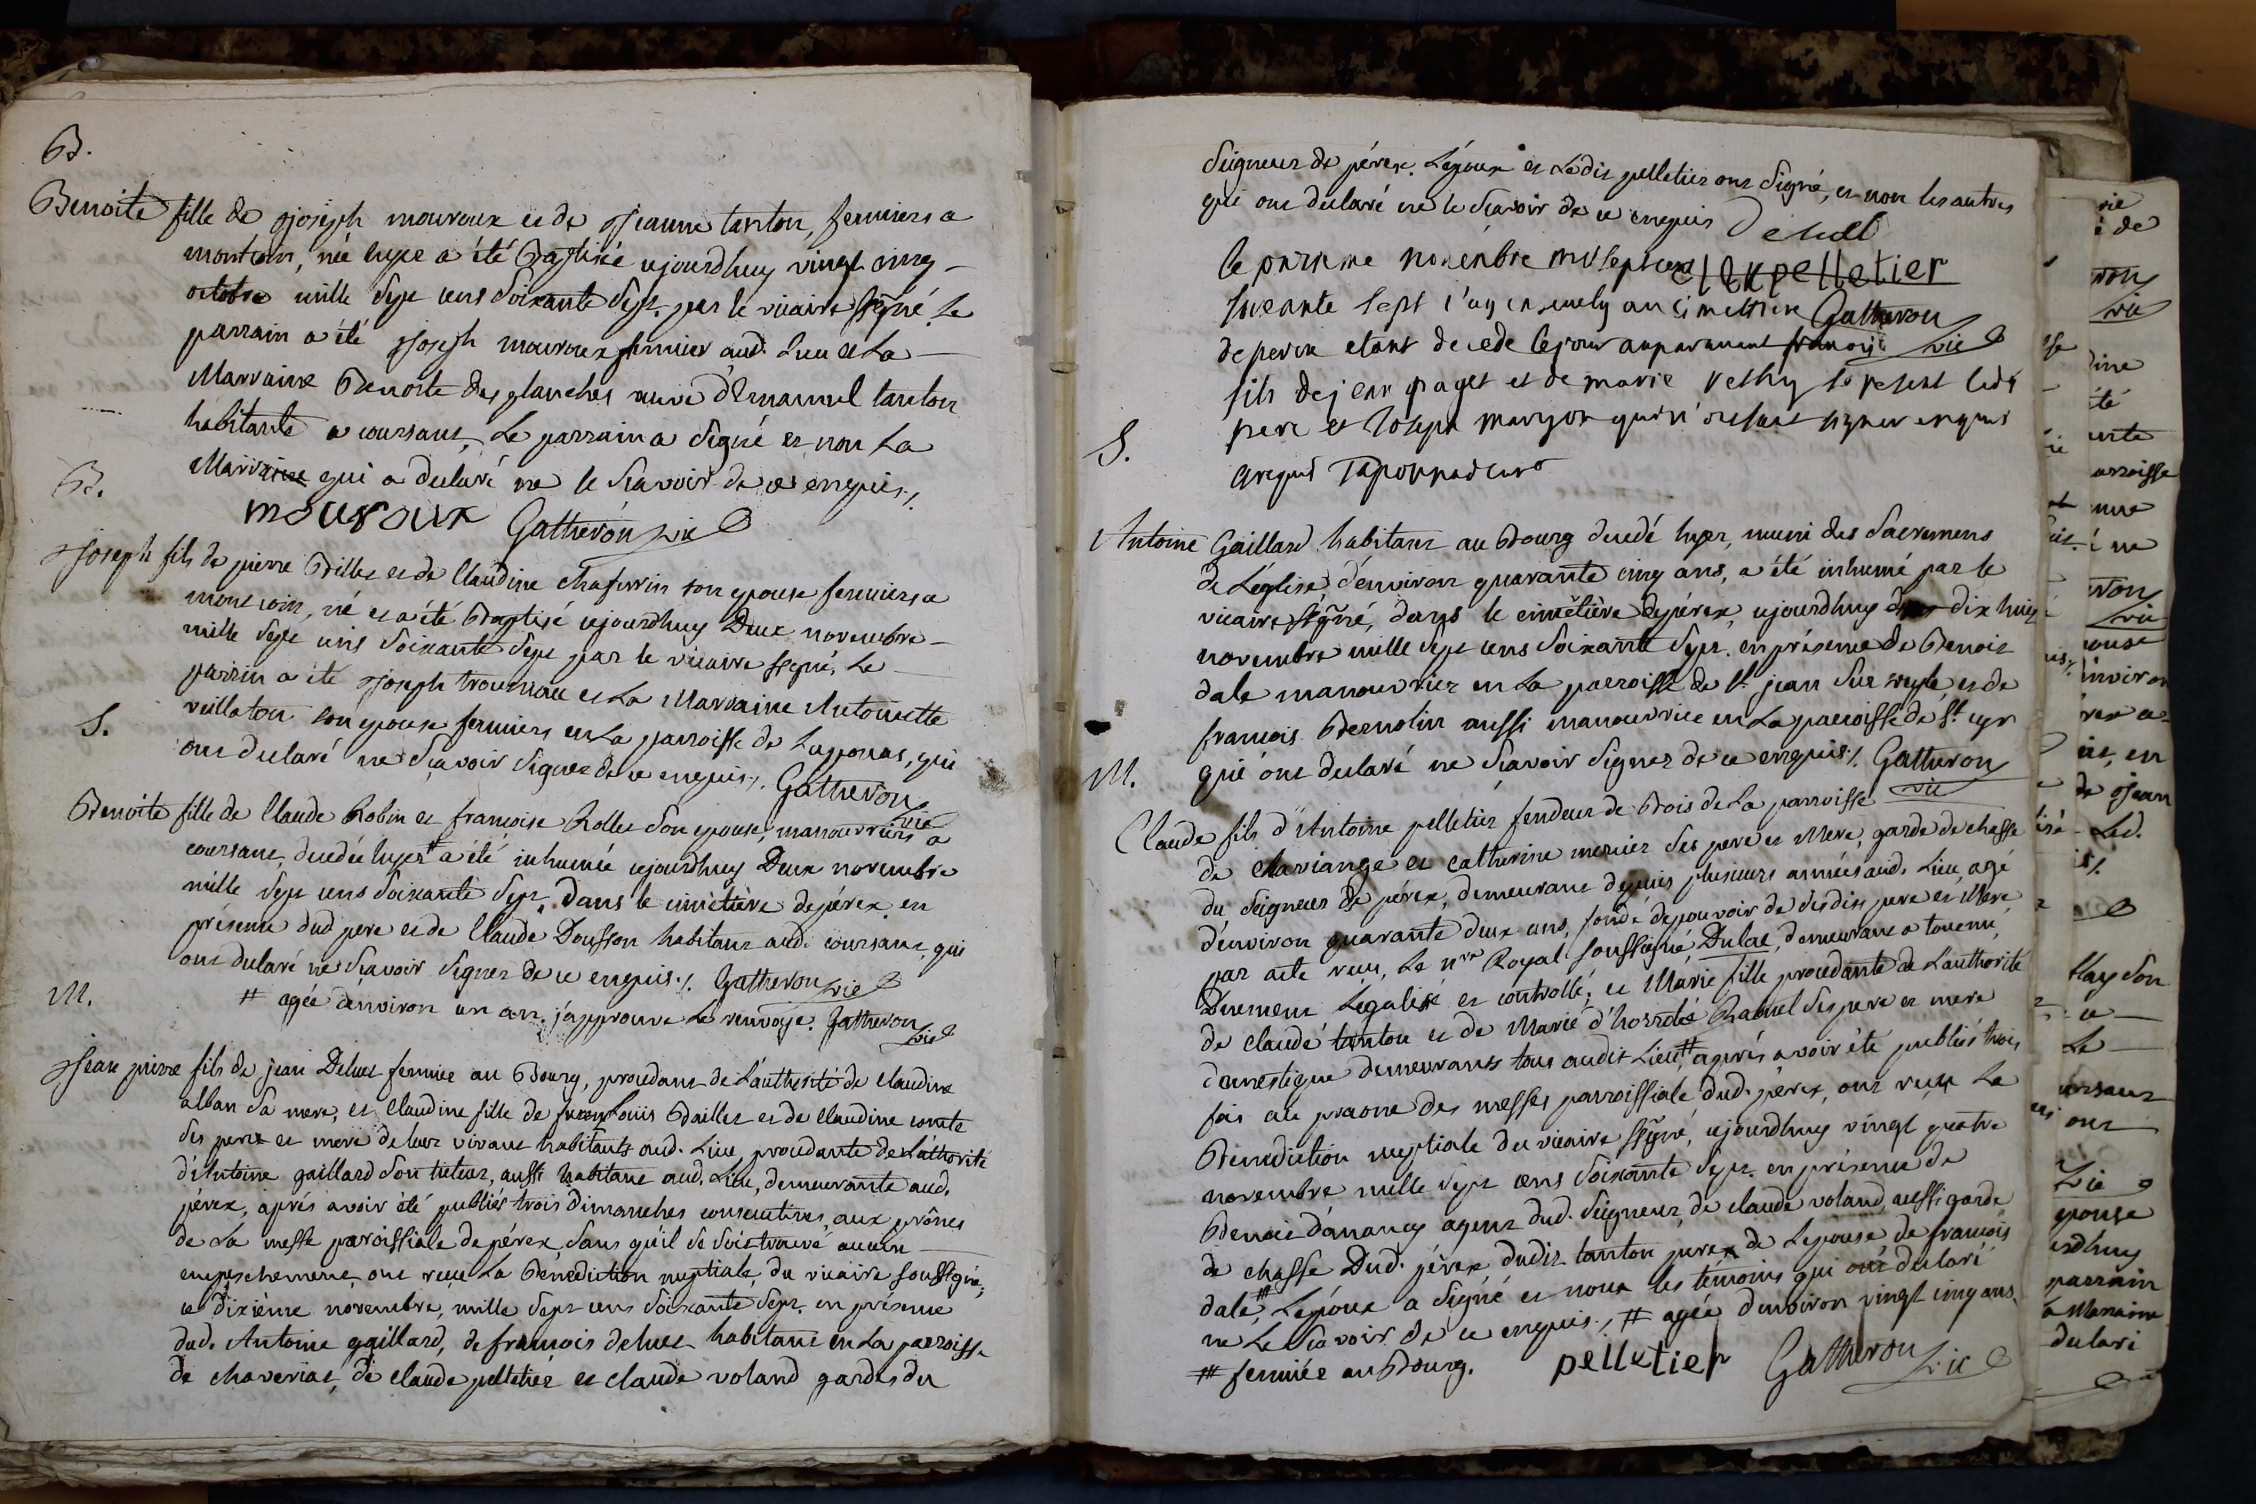 B.
Benoite fille de Joseph mouroux et de Jeanne tanton, fermiers a
montcoin, née hyer a été Baptisée ujourdhuy vingt cinq
octobre mille sept cens soixante sept. par le vicaire ssigné. Le
parrain a été Joseph mouroux fermier aud. Lieu et La
Marraine Benoite des planches veuve d'Emanuel tanton
habitante a coursant, Le parrain a signé et non La
Marraine qui a declaré ne le sçavoir de ce enquis./.
mouroux Gatheron vic
B.
Joseph fils de pierre Billet et de Claudine Chaferrin son epouse fermiers a
montcoin, né et a été Baptisé ujourdhuy Deux novembre
mille sept cens soixante sept par le vicaire ssigné, Le
parrin a été Joseph trouniau et La Marraine Antoinette
veillaton son epouse fermiers en La parroisse de Laponas, qui
ont declaré ne sçavoir signer de ce enquis./. Gatheron
vic
S.
Benoite fille de Claude Robin et francoise Rollet son epouse, manouvriers a
coursant, decedée hyer # a été inhumée ujourdhuy Deux novembre
mille sept cens soixante sept, dans le cimetière de pérex, en
présence dud pere et de Claude Dousson habitans aud. coursant, qui
ont declaré ne sçavoir signer de ce enquis./. Gatheron vic
# agée d'environ un an. j'approuve Le renvoye. Gatheron
vic
M.
Jean pierre fils de jean Deluet fermier au Bourg, procedant de L'authorité de claudine
alban sa mere, et claudine fille de Louis Baillet et de claudine comte
ses pere et mere de leur vivant habitants aud. Lieu, procedante de L'athorité
d'Antoine gaillard son tuteur, aussi habitant aud. Lieu, demeurante aud.
pérex, aprés avoir été publiés trois Dimanches consecutives, aux prônes
de La messe paroissiale de pérex, sans qu'il se soit trouvé aucun
empeschement, ont reçu La Benediction nuptiale, du vicaire soussigné,
ce dixième novembre, mille sept cens soixante sept. en présence
dud. Antoine gaillard, de francois deluet habitant en La parroisse
de chaveriat, de claude pelletier et claude voland gardes du
seigneur de pérex. L'époux et Ledit pelletier ont signé, et non les autres
qui ont declaré ne le sçavoir de ce enquis Deluet
le onzieme novembre mil sept cent pelletier
soixante sept j'ay ensevely au cimettiere Gatheron
de perex etant decede le jour auparavant françois vic
fils de jean paget et de marie vethy present ledit
pere et Joseph manjon qui n'ont sceu signer enquis
S.
Antoine Gaillard habitant au Bourg decedé hyer, muni des sacremens
de L'église d'environ quarante cinq ans, a été inhumé par le
vicaire ssigné, dans le cimetière de pérex, ujourdhuy dix huit
novembre mille sept cens soixante sept. en présence de Benoit
dale manouvrier en La parroisse de St. jean sur veyle, et de
francois Bernolin aussi manouvrier en La parroisse de St. cyr
qui ont declaré ne sçavoir signer de ce enquis./. Gatheron
vic
M.
Claude fils d'Antoine pelletier fendeur de Bois de La parroisse
de chaviange et catherine mercier ses pere et Mere, garde de chasse
du seigneur de pérex, demeurant depuis plusieurs années aud. Lieu, agé
d'environ quarante deux ans, fondé de pouvoir de sesdits pere et Mere
par acte reçu, Le nre Royal soussigné Dulac, demeurant a
Duement Legalisé et controllé; et Marie fille procedante de L'authorité
de claude tanton et de Marie Rabuel ses pere et mere
domestique demeurants tous audit Lieu, # aprés avoir été publiés trois
fois au praone des messes parroissiale dud. pérex, ont reçu La
Benediction nuptiale du vicaire ssigné, ujourdhuy vingt quatre
novembre mille sept cens soixante sept. en présence de
Benoit d'anancy agent dud. seigneur, de claude voland aussi garde
de chasse Dud. pérex dudit tanton pere, de L'epouse de francois
dale, ## L'epoux a signé et nous les témoins qui ont declaré
ne Le sçavoir de ce enquis./. # agée d'environ vingt cinq ans.
## fermier au Bourg. pelletier Gatheron vic